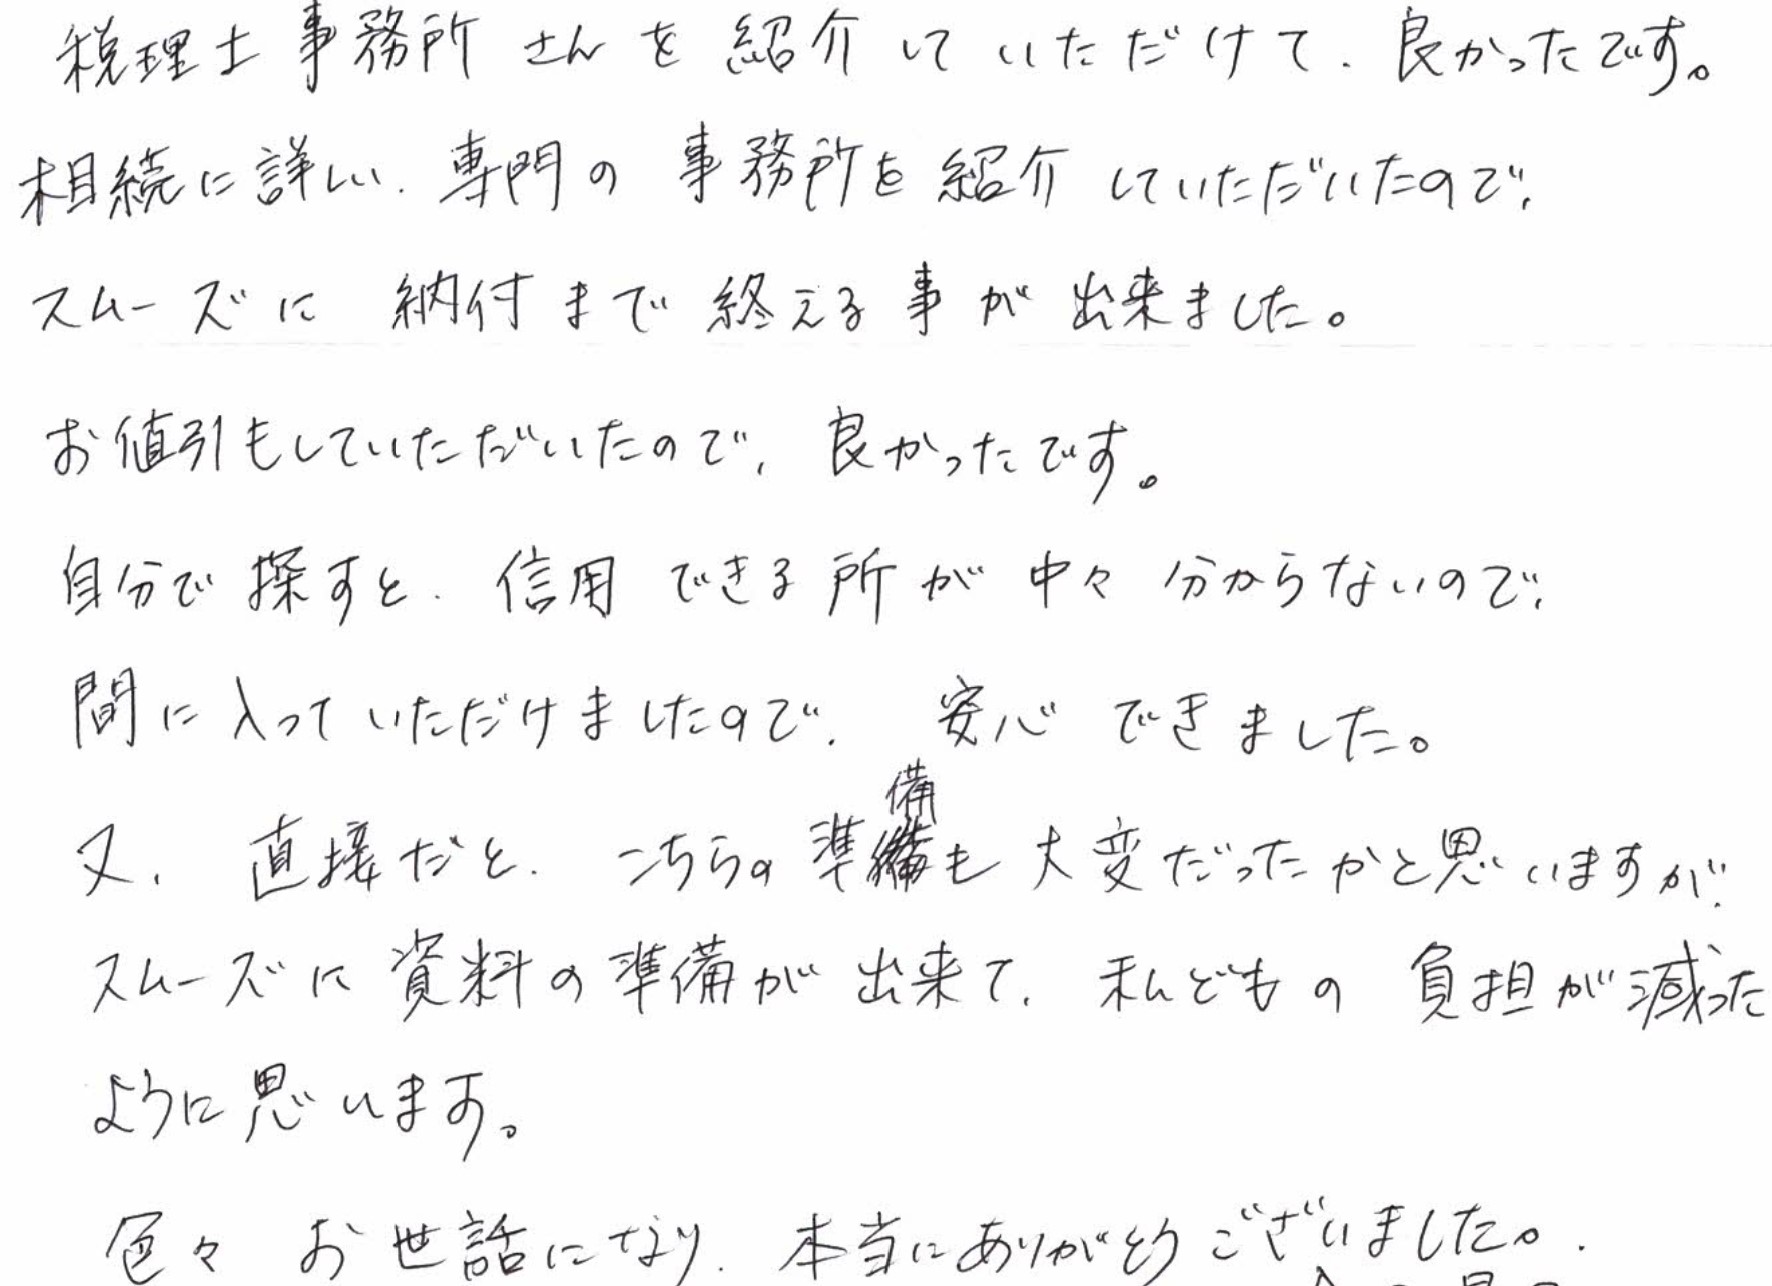 税理士事務所さんを紹介していただけて、良かったです。
相続に詳しい、専門の事務所を紹介していただいたので、
スムーズに納付まで終える事が出来ました。
お値引もしていただいたので、良かったです。
自分で探すと、信用できる所が中々分からないので、
間に入っていただけましたので、安心できました。
又、直接だと、こちらの準備も大変だったかと思いますが、
スムーズに資料の準備が出来て、私どもの負担が減った
ように思います。
色々お世話になり、本当にありがとうございました。